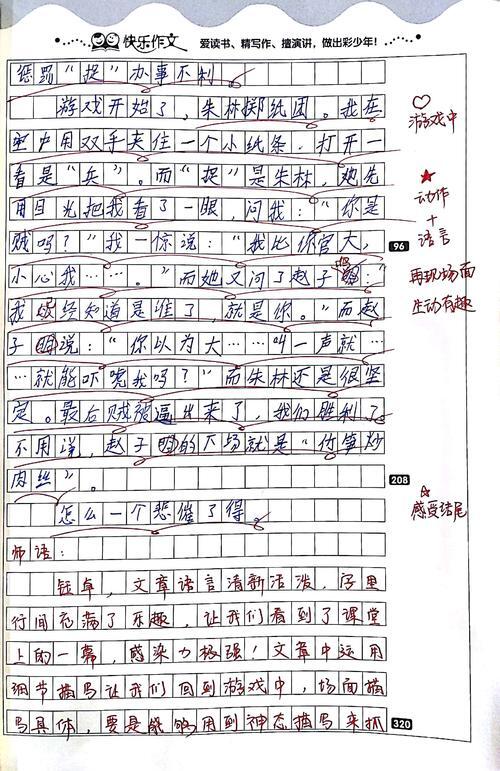 快乐作文 爱读书、精写作、擅演讲，做出彩少年！
惩罚“捉”办事不利。
游戏开始了，朱林掷纸团。我在
用双手夹住一个小纸条，打开一
看是“兵”。而“捉”是朱林，她先
用目光把我看了一眼，问我：“你是
贼吗？”我一惊说：“我比你官大，
小心我……。”而她又问了赵子明：“
我已经知道是谁了，就是你。”而赵
子明说：“你以为大……叫一声就…
…就能吓唬我吗？”而朱林还是很坚
定。最后贼被逼出来了，我们胜利了
不用说，赵子明的下场就是“竹笋炒
肉丝”。
怎么一个悲催了得。
师语：
钰卓，文章语言清新活泼，字里
行间充满了乐趣，让我们看到了课堂
上的一幕，感染力极强！文章中运用
细节描写让我们回到游戏中，场面描
写具体，要是能够用到神态描写来抓
游戏中
动作
+
语言
96
再现场面
生动有趣
208
感受结尾
320